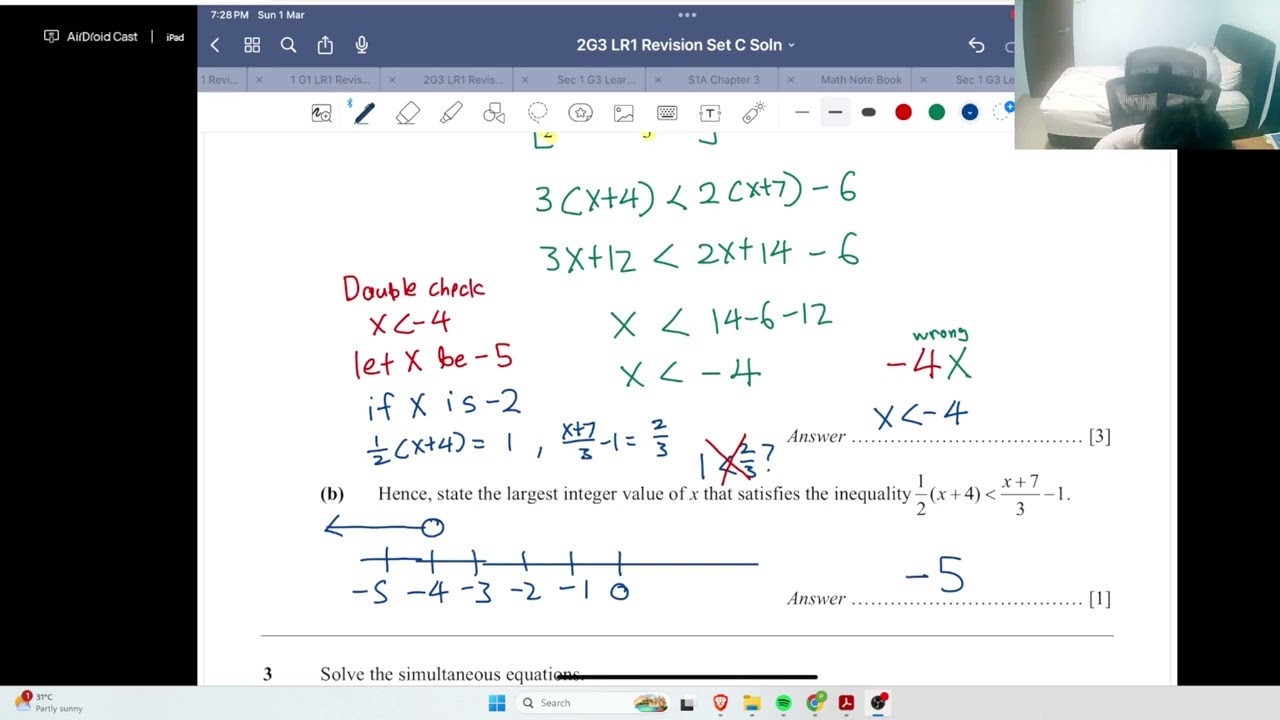 AirDroid Cast | iPad
7:28 PM Sun 1 Mar
2G3 LR1 Revision Set C Soln
1 Revi...
1 G1 LR1 Revis...
2G3 LR1 Revis...
Sec 1 G3 Lear...
S1A Chapter 3
Math Note Book
Sec 1 G3 Le
2 3
3(x+4) < 2(x+7) - 6
3x+12 < 2x+14 - 6
x < 14-6-12
x < -4
Double check
x<-4
let x be -5
if x is -2
1/2(x+4) = 1 , x+7/3 -1 = 2/3
1 < 2/3?
wrong
-4x
x<-4
Answer .................................. [3]
(b) Hence, state the largest integer value of x that satisfies the inequality 1/2(x+4) < x+7/3 -1.
-5 -4 -3 -2 -1 0
-5
Answer .................................. [1]
3 Solve the simultaneous equations.
1
31°C
Partly sunny
Search